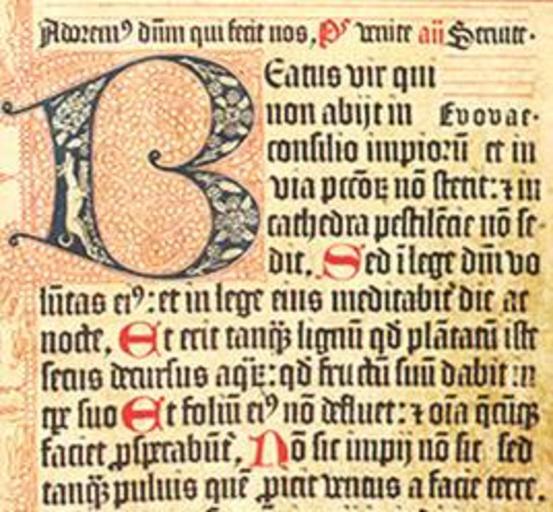 Adorem⁹ dñm qui fecit nos, P̄s Venite añ Seruite.
Beatus vir qui
non abijt in Evovae.
consilio impiorū et in
via pccōꝝ nō stetit: ⁊ in
cathedra pestilēcie nō se-
dit, Sed ī lege dñi vo
lūtas ei⁹: et in lege eius meditabit̃ die ac
nocte, Et erit tanqꝫ lignū qd̄ plātatū iste
secus decursus aqꝝ: qd̄ fructū suū dabit in
tꝑe suo Et foliū ei⁹ nō defluet: ⁊ oīa q̄cūqꝫ
faciet ꝓsꝑabūt̃, Nō sic impij nō sic sed
tanqꝫ puluis quē ꝓicit ventus a facie terre.